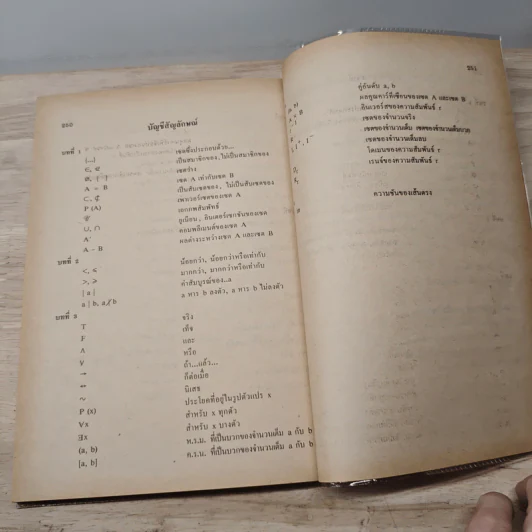 250
บัญชีสัญลักษณ์
บทที่ 1
{...} เซตซึ่งประกอบด้วย...
∈, ∉ เป็นสมาชิกของ, ไม่เป็นสมาชิกของ
เซตว่าง
A = B เซต A เท่ากับเซต B
⊂, ⊄ เป็นสับเซตของ, ไม่เป็นสับเซตของ
P (A) เพาเวอร์เซตของเซต A
เอกภพสัมพัทธ์
∪, ∩ ยูเนียน, อินเตอร์เซกชันของเซต
A′ คอมพลีเมนต์ของเซต A
A – B ผลต่างระหว่างเซต A และเซต B
บทที่ 2
<, ≤ น้อยกว่า, น้อยกว่าหรือเท่ากับ
>, ≥ มากกว่า, มากกว่าหรือเท่ากับ
| a | ค่าสัมบูรณ์ของ...a
a | b, a∤b a หาร b ลงตัว, a หาร b ไม่ลงตัว
บทที่ 3
T จริง
F เท็จ
∧ และ
∨ หรือ
→ ถ้า...แล้ว...
↔ ก็ต่อเมื่อ
~ นิเสธ
P (x) ประโยคที่อยู่ในรูปตัวแปร x
∀x สำหรับ x ทุกตัว
∃x สำหรับ x บางตัว
(a, b) ห.ร.ม. ที่เป็นบวกของจำนวนเต็ม a กับ b
[a, b] ค.ร.น. ที่เป็นบวกของจำนวนเต็ม a กับ b
251
คู่อันดับ a, b
ผลคูณคาร์ทีเซียนของเซต A และเซต B
อินเวอร์สของความสัมพันธ์ r
เซตของจำนวนจริง
เซตของจำนวนเต็ม เซตของจำนวนเต็มบวก
เซตของจำนวนเต็มลบ
โดเมนของความสัมพันธ์ r
เรนจ์ของความสัมพันธ์ r
ความชันของเส้นตรง